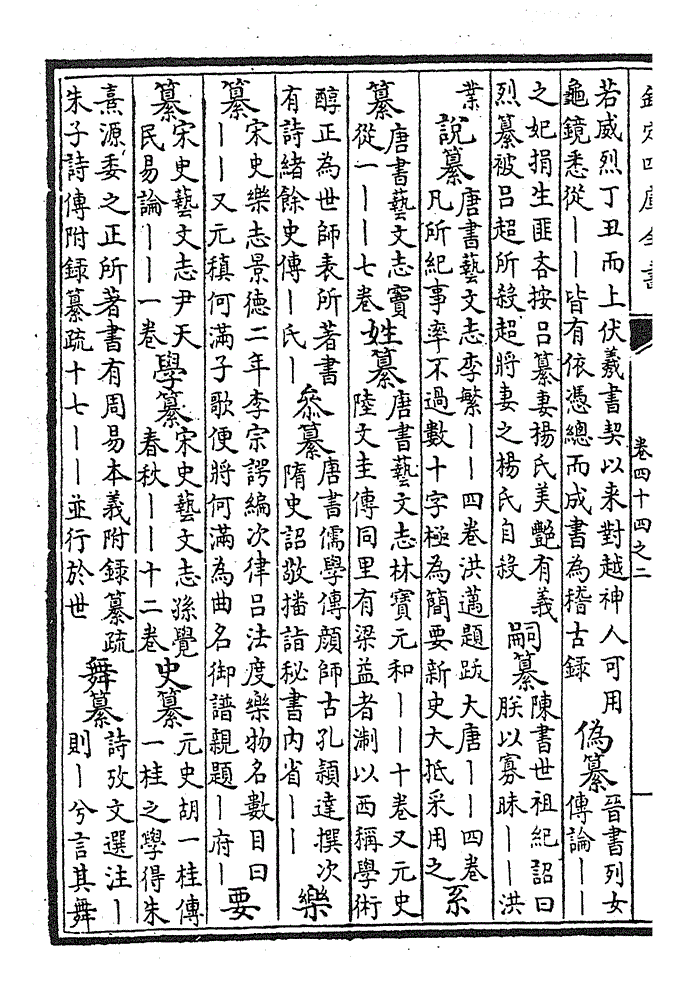 欽定四庫全書
卷四十四之二
若威烈丁丑而上伏羲書契以来對越神人可用
龜鏡悉從丨丨皆有依憑總而成書為稽古録
偽纂
晉書列女
傳論丨丨
之妃捐生匪吝按吕纂妻楊氏美艷有義
烈纂被吕超所殺超將妻之楊氏自殺
嗣纂
陳書世祖紀詔曰
朕以寡昧丨丨洪
業
說纂
唐書藝文志李繁丨丨四卷洪邁題䟦大唐丨丨四卷
凡所紀事率不過數十字極為簡要新史大抵采用之
系
纂
唐書藝文志竇
從一丨丨七卷
姓纂
唐書藝文志林寶元和丨丨十卷又元史
陸文圭傳同里有梁益者淛以西稱學術
醇正為世師表所著書
有詩緒餘史傳丨氏丨
叅纂
唐書儒學傳顔師古孔頴達撰次
隋史詔敬播詣秘書内省丨丨
樂
纂
宋史樂志景徳二年李宗諤編次律吕法度樂物名數目曰
丨丨又元稹何滿子歌便將何滿為曲名御譜親題丨府丨
要
纂
宋史藝文志尹天
民易論丨丨一卷
學纂
宋史藝文志孫覺
春秋丨丨十二卷
史纂
元史胡一桂傳
一桂之學得朱
熹源委之正所著書有周易本義附録纂疏
朱子詩傳附録纂疏十七丨丨並行於世
舞纂
詩攷文選注丨
則丨兮言其舞